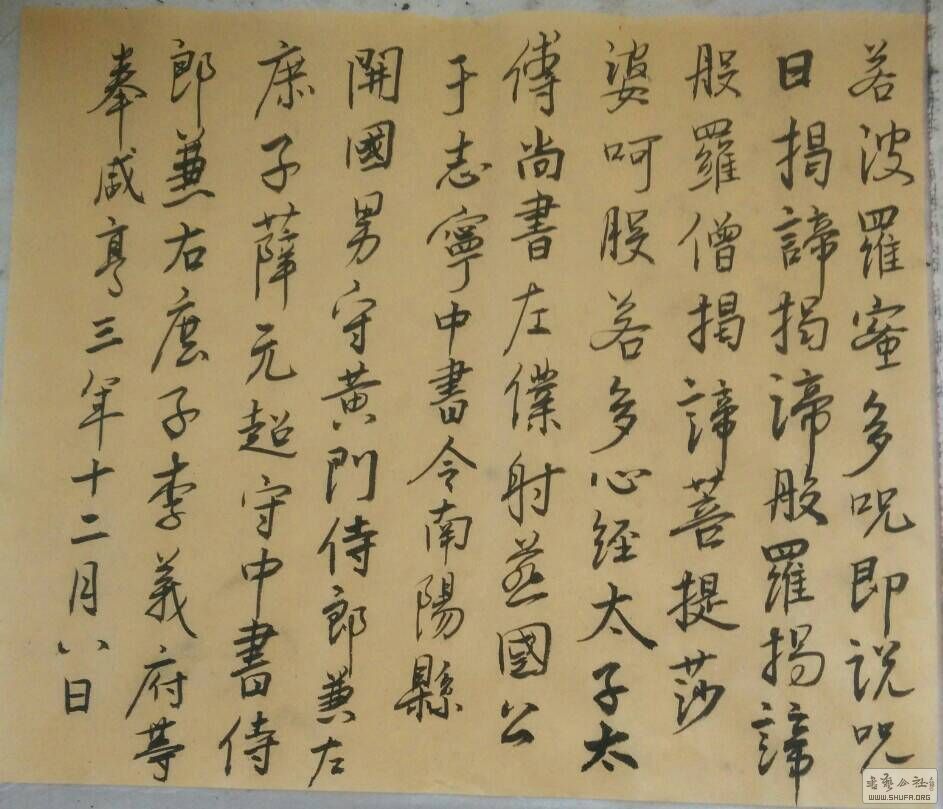 若波羅蜜多呪即说呪
曰揭諦揭諦般羅揭諦
般羅僧揭諦菩提莎
婆呵般若多心经太子太
傅尚書左僕射燕國公
于志寧中書令南陽縣
開國男守黃門侍郎兼左
庶子薛元超守中書侍
郎兼右庶子李義府等
奉咸亨三年十二月八日
WWW.SHUFA.ORG